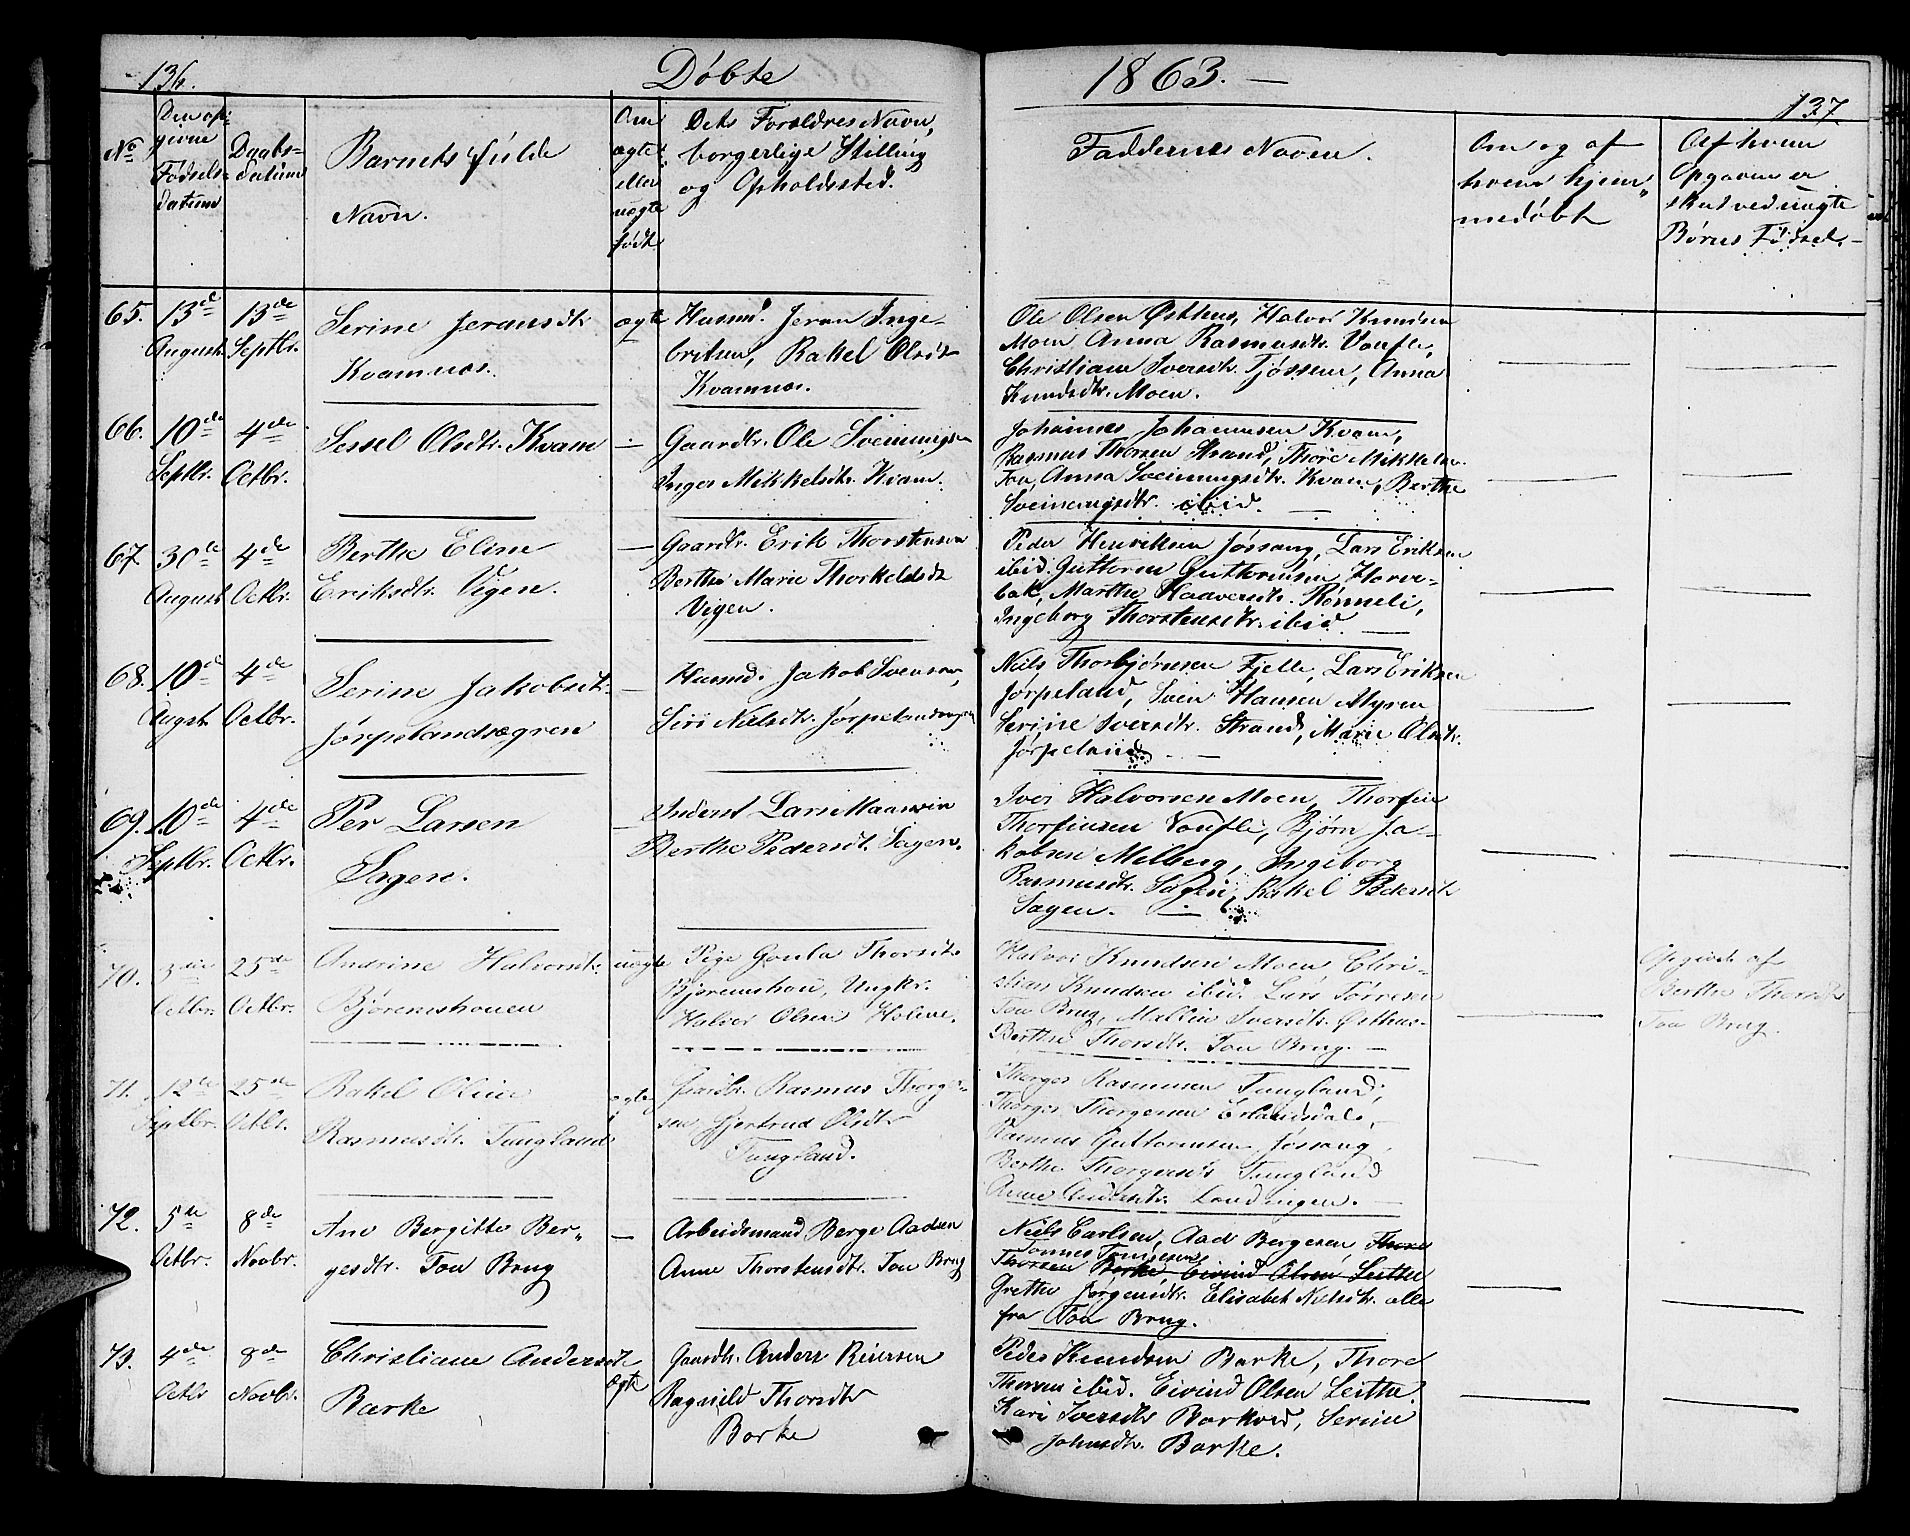 136.
Døbte
1863. —
137
No
Den opgivne Fødselsdatum
Daabsdatum
Barnets fulde Navn.
Om ægte eller uægte født.
Dets Forældres Navn, borgerlige Stilling og Opholdssted.
Faddernes Navne.
Om og af hvem hjemmedøbt
Af hvem Opgaven er skeet ved uægte Børns Fødsel.
65. 13de August 13de Septbr.
Serine Jeransdtr
Kvamnæs.
ægte
Husmd. Jeran Inge-
britsen, Rakel Olsdtr
Kvamnæs.
Ole Olsen Østhus, Halvor Knudsen
Moen, Anna Rasmusdtr. Voufle,
Christiane Iversdtr. Tjøssem, Anna
Knudsdtr. Moen.
66. 10de Septbr. 4de Octbr.
Sessel Olsdtr. Kvam
Gaardbr. Ole Sveinungsen
Inger Mikkelsdtr. Kvam.
Johannes Johannesen Kvam,
Rasmus Thorsen Strand, Thore Mikkelsen
Tou, Anna Sveinungsdtr. Kvam, Berthe
Sveinungsdtr. ibid. —
67. 30de August 4de Octbr.
Berthe Eline
Eriksdtr. Vigen.
Gaardbr. Erik Thorstensen
Berthe Marie Thorkelsdtr
Vigen.
Peder Henriksen Jøssang, Lars Eriksen
ibid. Guttorm Guttormsen Horve-
bak, Marthe Haaversdtr. Rønneli,
Ingeborg Thorstensdtr. ibid. —
68. 10de Augst. 4de Octbr.
Serine Jakobsdtr.
Jørpelandsøgren
Husmd. Jakob Svensen,
Siri Nielsdtr. Jørpelandsøgren
Niels Thorbjørnsen Fjelle, Lars Eriksen
Jørpeland, Svein Hansen Myren
Serine Iversdtr. Strand, Marie Olsdtr.
Jørpeland. —
69. 10de Septbr. 4de Octbr.
Per Larsen
Sagen.
Inderst Lars
Berthe Pedersdtr. Sagen.
Iver Halvorsen Moen, Thorfin
Thorfinsen Voufle, Bjørn Ja-
kobsen Melberg, Ingeborg
Rasmusdtr. Sagen, Rakel Pedersdtr
Sagen. —
70. 3die Octbr. 25de Octbr.
Andrine Halvorsdtr.
Bjørenshouen
uægte
Pige Gonla Thorsdtr
Bjørenshou, Ungkr.
Halvor Olsen Holene.
Halvor Knudsen Moen, Chri-
stian Knudsen ibid. Lars Tørresen
Tou Brug, Mallin Iversdtr. Østhus.
Berthe Thorsdtr. Tou Brug. —
Opgivet af
Berthe Thorsdtr
Tou Brug.
71. 12te Septbr. 25de Octbr.
Rakel Oline
Rasmusdtr. Tungland
ægte
Gaardbr. Rasmus Thorger-
sen Gjertrud Olsdtr
Tungland.
Thorger Rasmussen Tungland,
Thorger Thorgersen Erlandsdal,
Rasmus Guttormsen Jøssang,
Berthe Thorgersdtr Tungland
Anne Andersdtr. Landingen. —
72. 5te Octbr. 8de Novbr.
Ane Bergitte Ber-
gesdtr. Tou Brug
Arbeidsmand Berge Aadsen
Anne Thorstensdtr. Tou Brug
Niels Carlsen, Aad Bergesen, Thore
Tønnes Tønnesen
Thorsen Barke, Eivind Olsen Leithe
Grethe Jørgensdtr. Elisabet Nielsdtr. alle
fra Tou Brug.
73. 4de Octbr 8de Novbr.
Christiane Andersdtr
Barke
ægte
Gaardbr. Anders Reiersen
Ragnild Thorsdtr
Barke
Peder Knudsen Barke, Thore
Thorsen ibid. Eivind Olsen Leithe.
Kari Iversdtr Barkved, Serine
Johnsdtr. Barke.